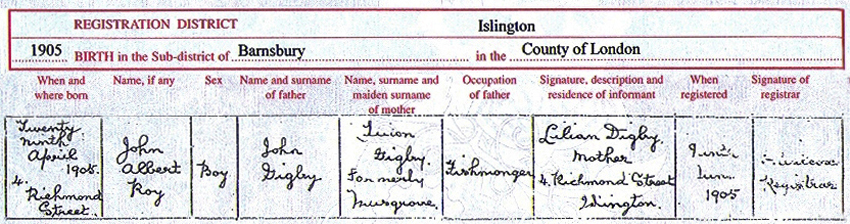 REGISTRATION DISTRICT Islington
1905 BIRTH in the Sub-district of Barnsbury in the County of London
When and where born
Name, if any
Sex
Name and surname of father
Name, surname and maiden surname of mother
Occupation of father
Signature, description and residence of informant
When registered
Signature of registrar
Twenty
ninth
April
1905.
4.
Richmond
Street.
John
Albert
Roy
Boy
John
Digby
Digby.
Formerly
Musgrove.
Fishmonger
Lilian Digby.
Mother
4. Richmond Street
Islington.
1905
Registrar